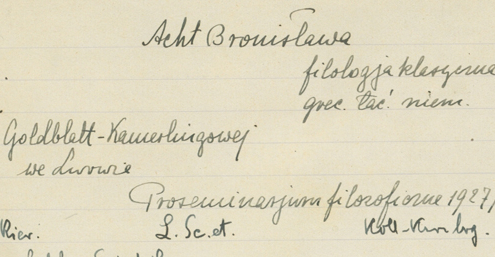 Acht Bronisława
filologja klasyczna
grec. łać. niem.
Goldblatt-Kamerlingowej
we Lwowie
Proseminarjum filozoficzne 1927/
L. Sc. et.